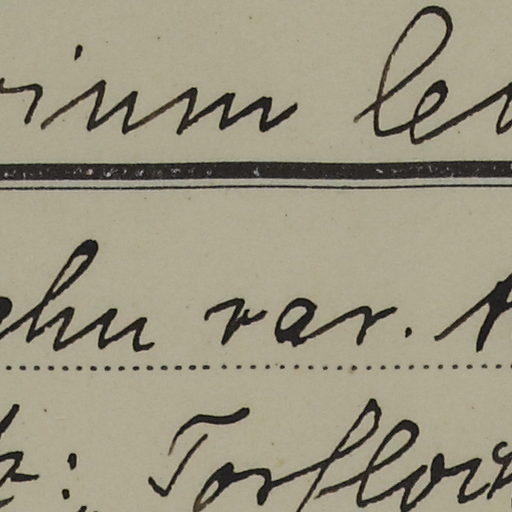 rium le
hu var.
: Torflo